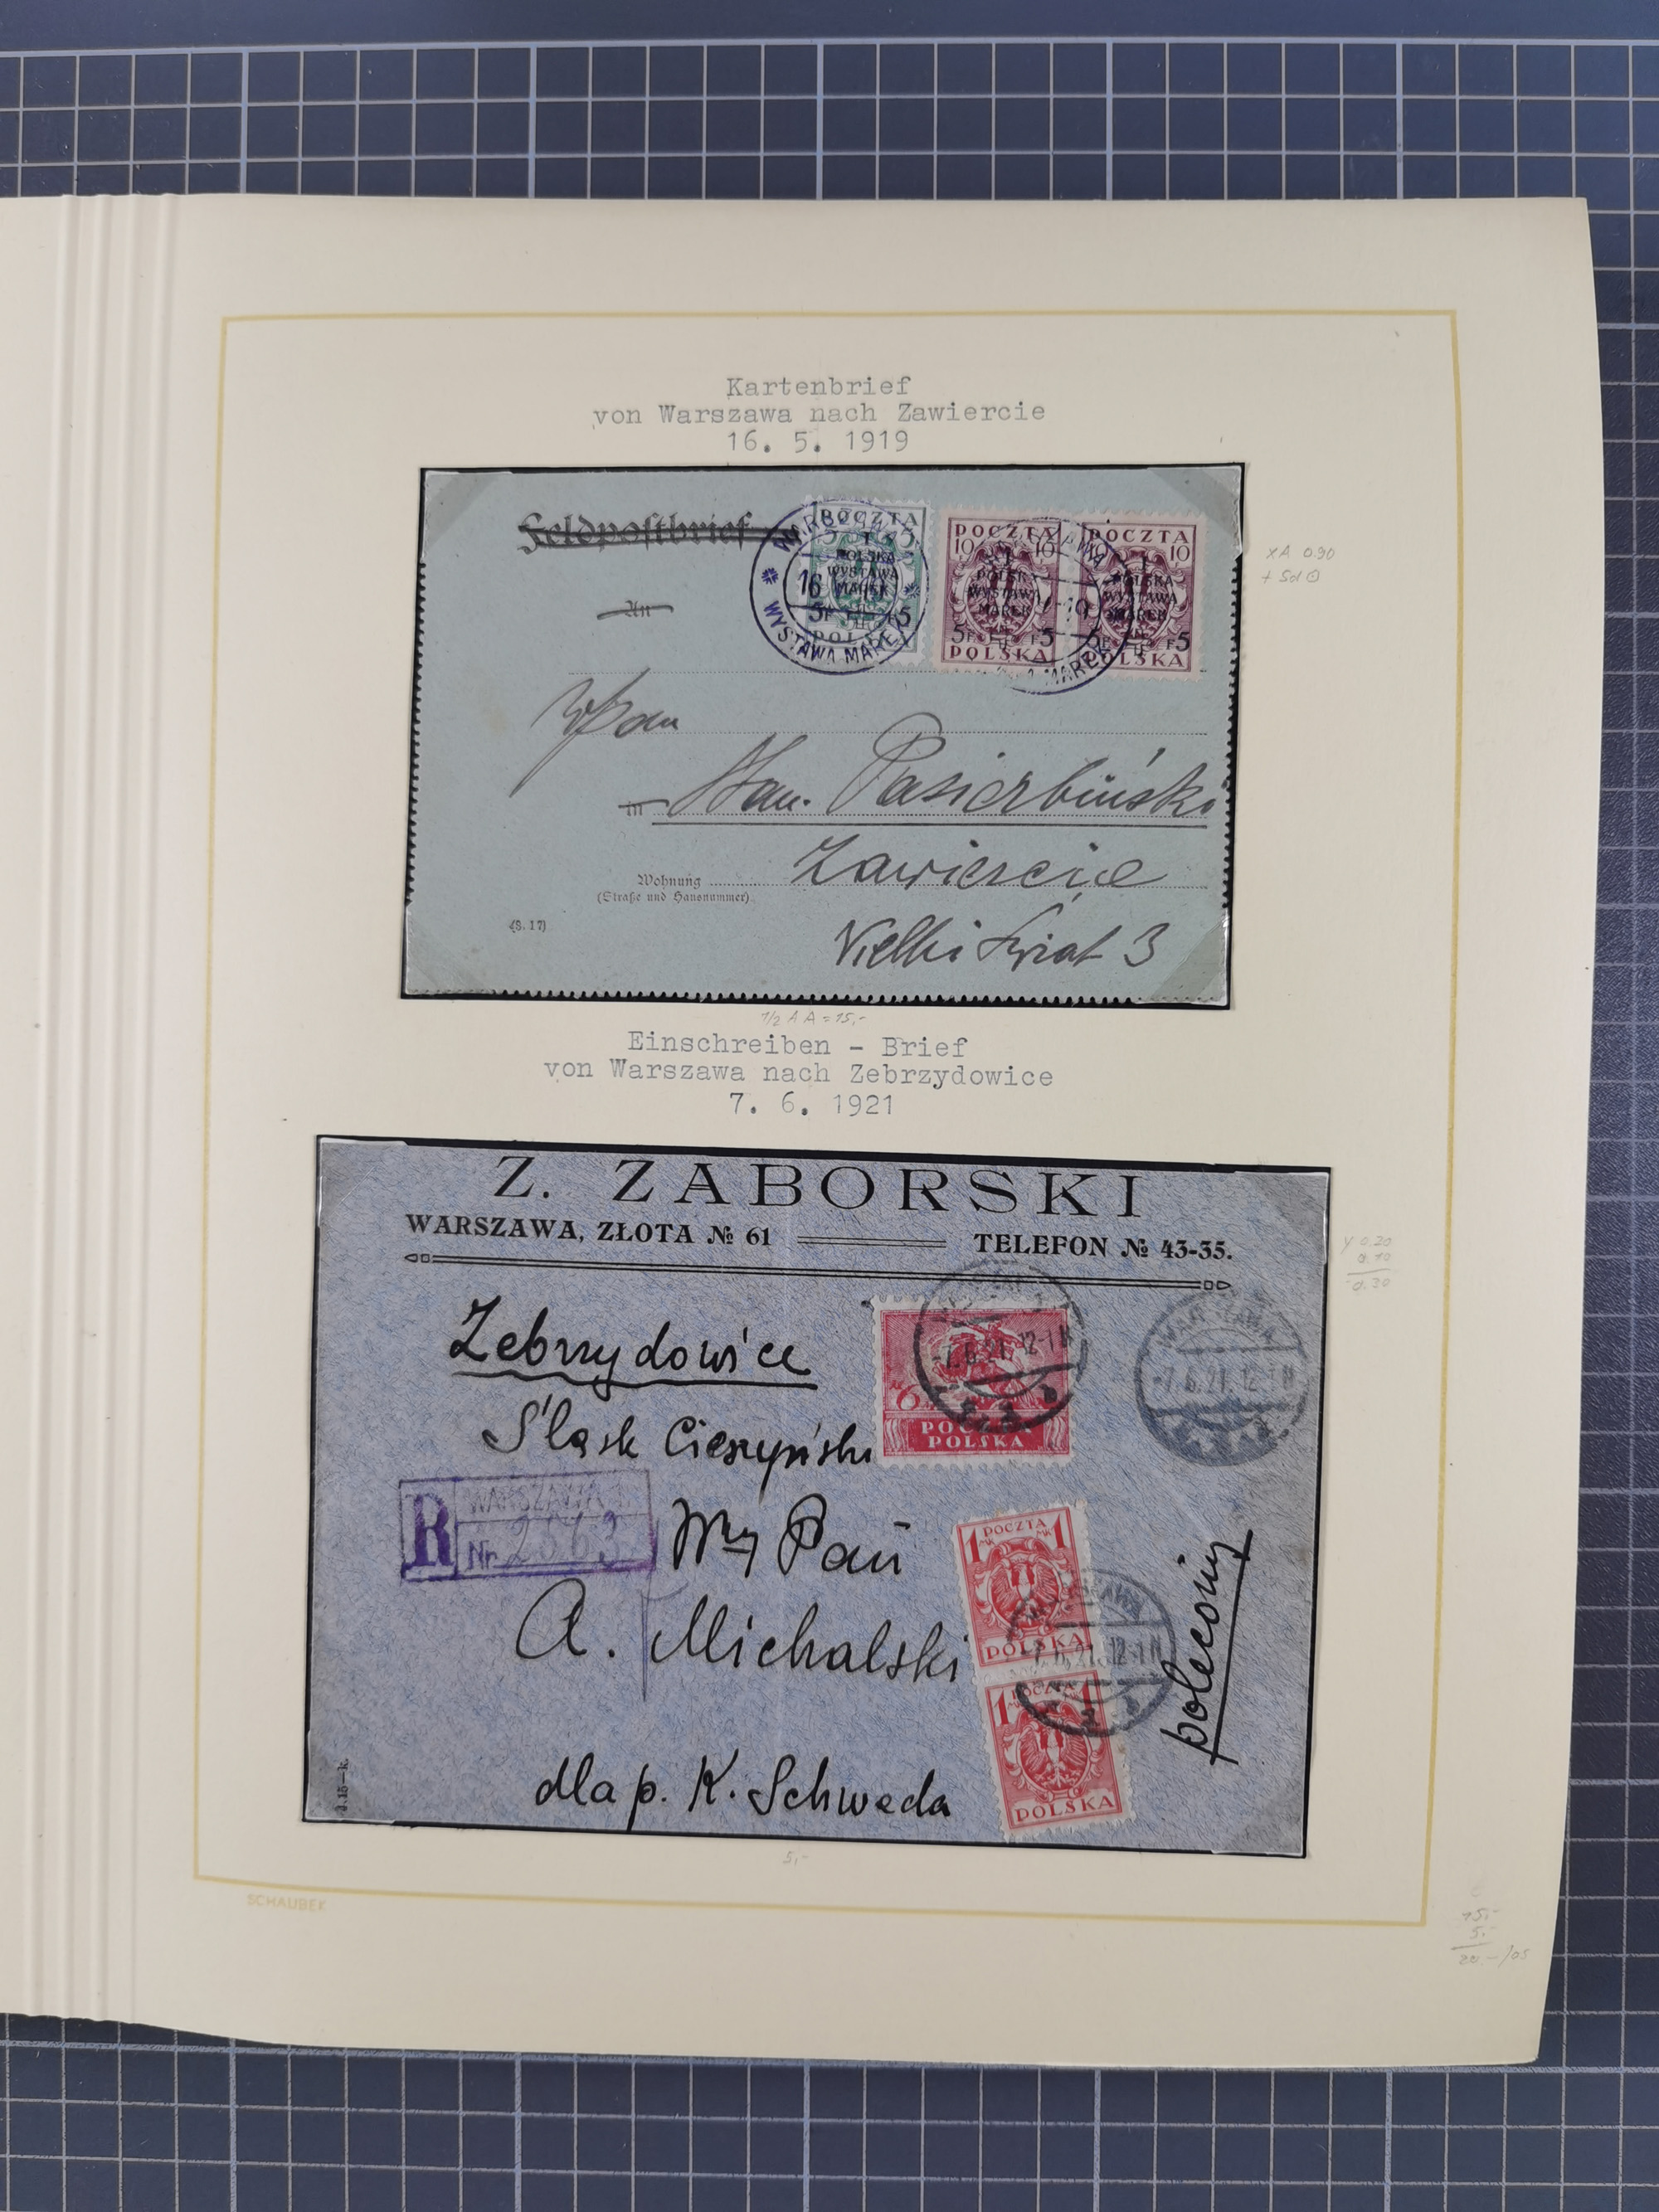 Kartenbrief
von Warszawa nach Zawiercie
16. 5. 1919
Feldpostbrief
An
WARSZAWA
16
WYSTAWA MAREK
POCZTA
5 5
I
POLSKA
WYSTAWA
MAREK
5F +5
POLSKA
POCZTA
10 10
I
POLSKA
WYSTAWA
MAREK
5F +5
POLSKA
POCZTA
10 10
I
POLSKA
WYSTAWA
MAREK
5F +5
POLSKA
xA 0.90
WPan
in Stan. Pasierbiński
Zawiercie
Wohnung
(Straße und Hausnummer)
(S. 17)
Wielki Świat 3
1/2 A A = 15,-
Einschreiben - Brief
von Warszawa nach Zebrzydowice
7. 6. 1921
Z. ZABORSKI
WARSZAWA, ZŁOTA № 61
TELEFON № 43-35.
Zebrzydowice
Śląsk Cieszyński
-7.6.21. 12-1N
6
POCZTA
POLSKA
WARSZAWA
-7.6.21. 12-1N
R
WARSZAWA 1.
Nr. 2563
Pan
A. Michalski
dla p. K. Schweda
POCZTA
1 MK MK 1
POLSKA
WARSZAWA
-7.6.21. 12-1N
POCZTA
1 1
POLSKA
polecony
J. 15—k.
y 0.20
0.10
0.30
5,-
SCHAUBEK
15,-
5,-
20,-/05